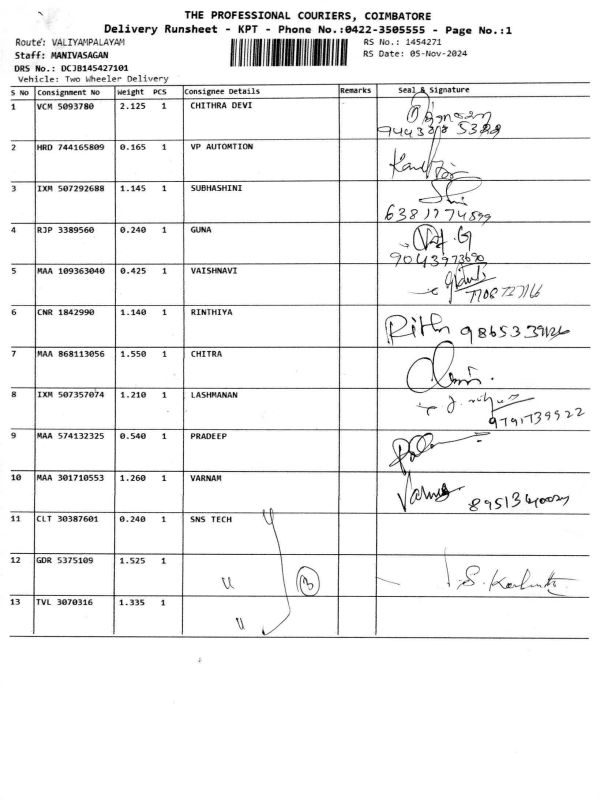 THE PROFESSIONAL COURIERS, COIMBATORE
Delivery Runsheet - KPT - Phone No.:0422-3505555 - Page No.:1
Route: VALIYAMPALAYAM RS No.: 1454271
Staff: MANIVASAGAN RS Date: 05-Nov-2024
DRS No.: DCJB145427101
Vehicle: Two Wheeler Delivery
S No Consignment No Weight PCS Consignee Details Remarks Seal & Signature
1 VCM 5093780 2.125 1 CHITHRA DEVI
2 HRD 744165809 0.165 1 VP AUTOMTION
3 IXM 507292688 1.145 1 SUBHASHINI
4 RJP 3389560 0.240 1 GUNA
9043973690
5 MAA 109363040 0.425 1 VAISHNAVI
6 CNR 1842990 1.140 1 RINTHIYA
7 MAA 868113056 1.550 1 CHITRA
8 IXM 507357074 1.210 1 LASHMANAN
9791739522
9 MAA 574132325 0.540 1 PRADEEP
10 MAA 301710553 1.260 1 VARNAM
11 CLT 30387601 0.240 1 SNS TECH
12 GDR 5375109 1.525 1 " 3
13 TVL 3070316 1.335 1 "